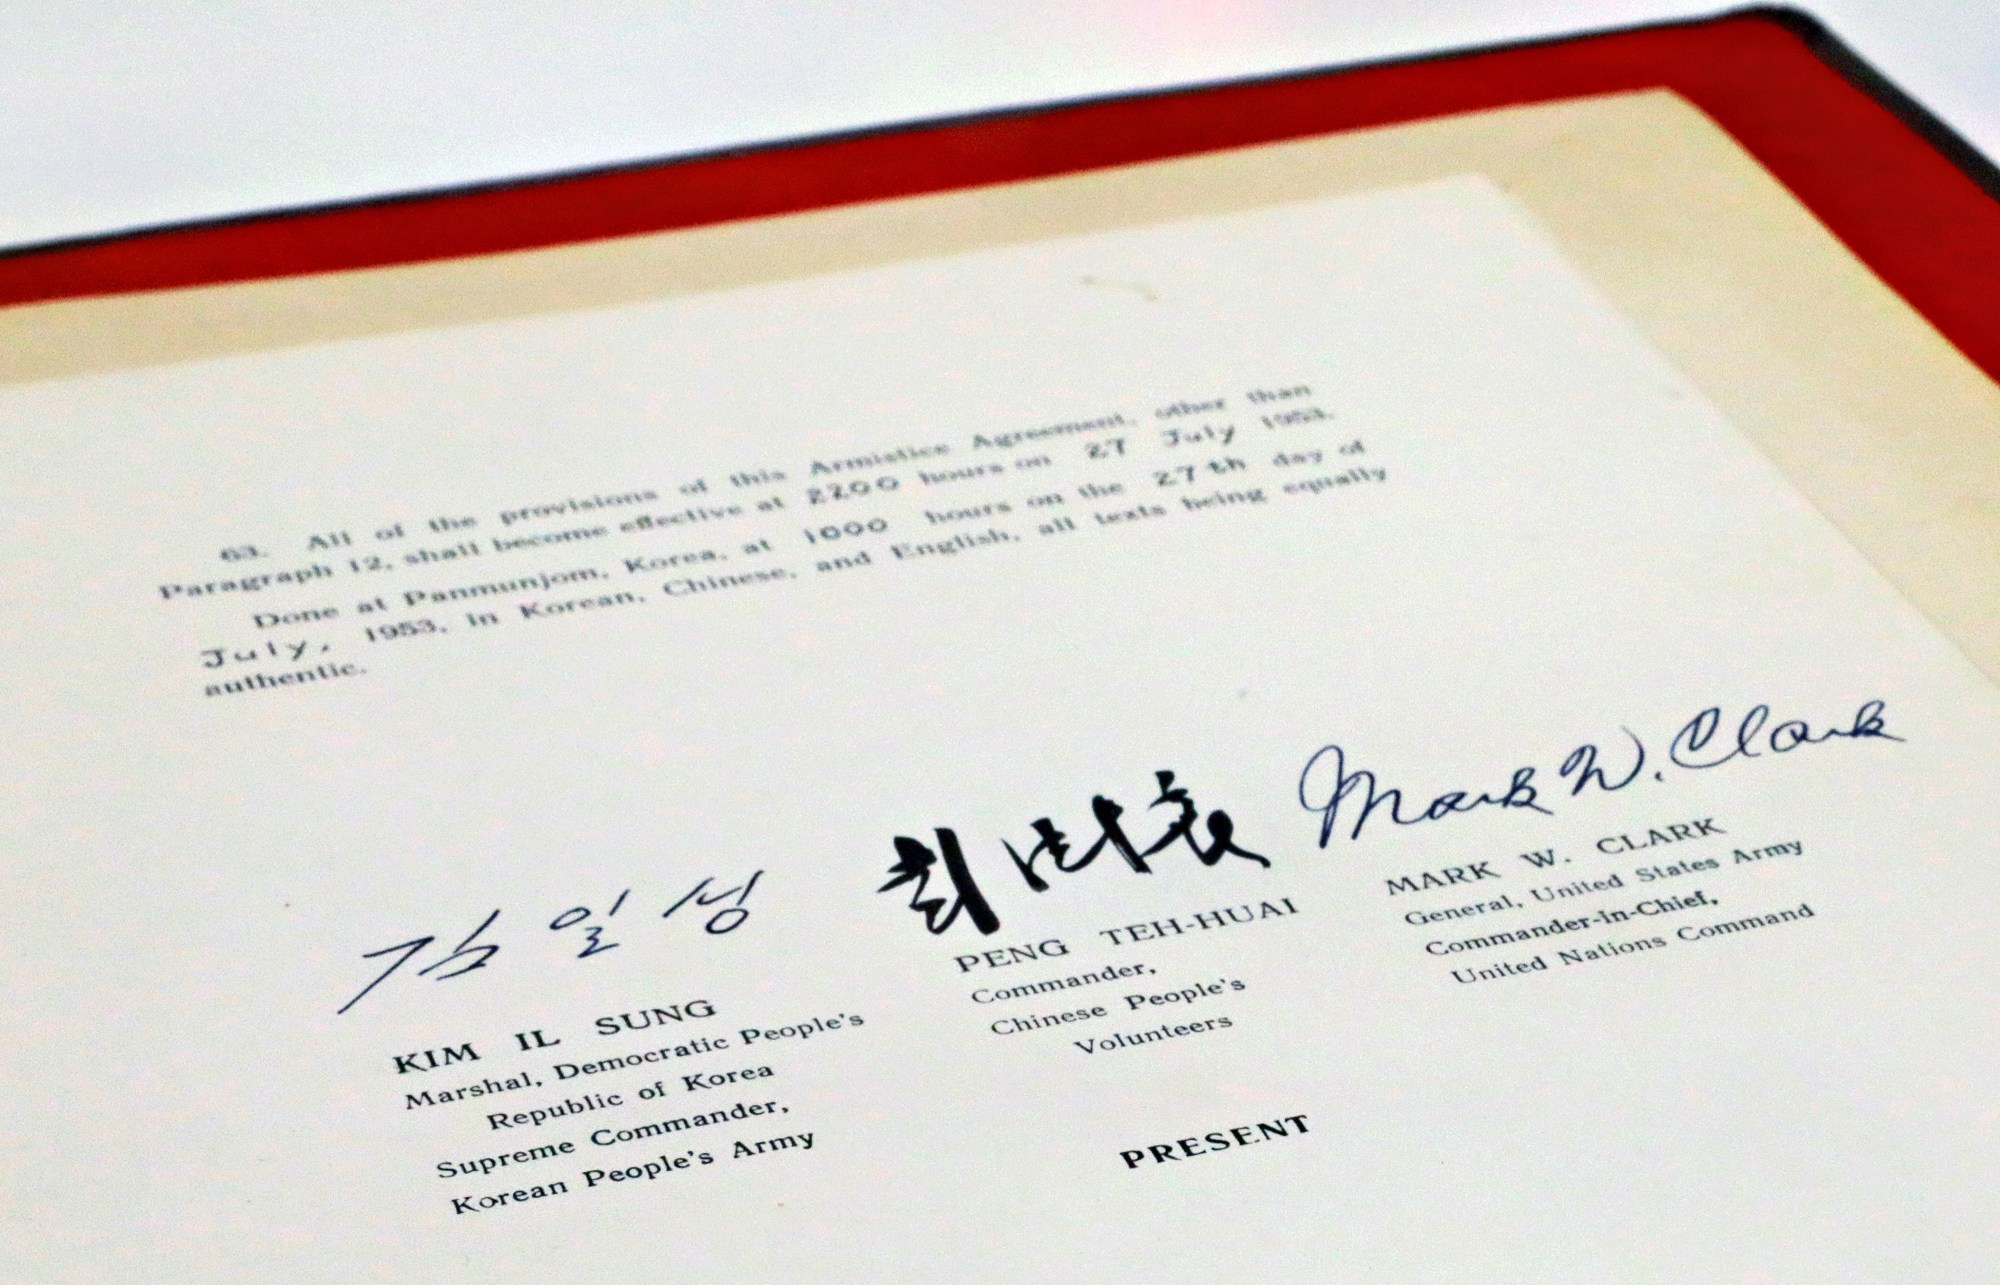 63. All of the provisions of this Armistice Agreement, other than
Paragraph 12, shall become effective at 2200 hours on 27 July 1953.
Done at Panmunjom, Korea, at 1000 hours on the 27th day of
July, 1953, in Korean, Chinese, and English, all texts being equally
authentic.
김일성 彭德懷 Mark W. Clark
KIM IL SUNG
Marshal, Democratic People's
Republic of Korea
Supreme Commander,
Korean People's Army
PENG TEH-HUAI
Commander,
Chinese People's
Volunteers
MARK W. CLARK
General, United States Army
Commander-in-Chief,
United Nations Command
PRESENT